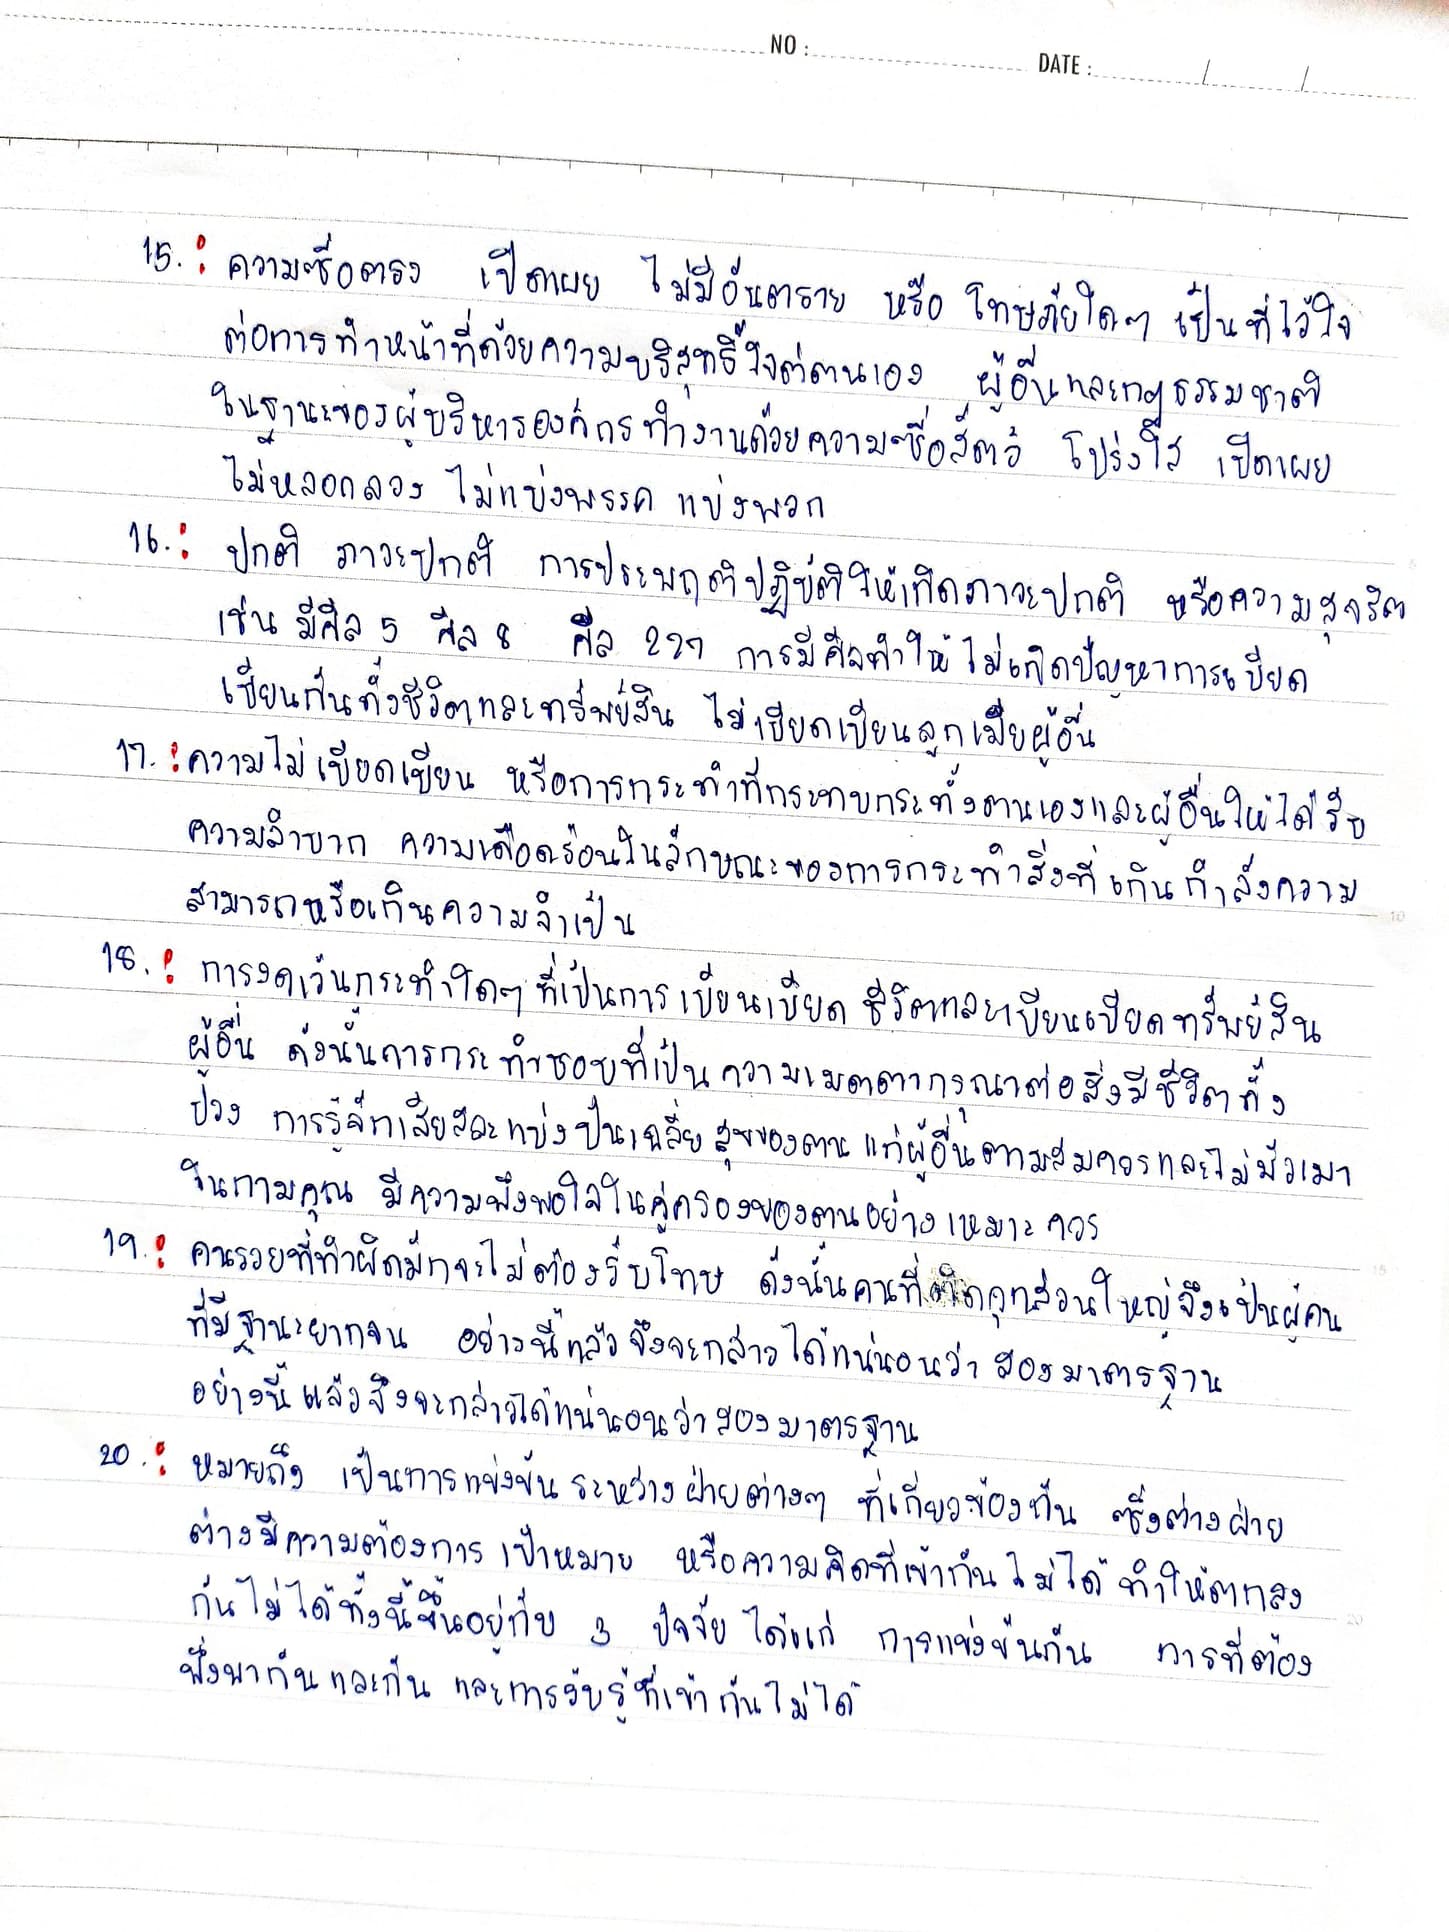 NO :
DATE : / /
15. : ความซื่อตรง เปิดเผย ไม่มีอันตราย หรือ โทษภัยใดๆ เป็นที่ไว้ใจ
ต่อการทำหน้าที่ด้วยความบริสุทธิ์ใจต่อตนเอง ผู้อื่นและกฎธรรมชาติ
ในฐานะของผู้บริหารองค์กรทำงานด้วยความซื่อสัตว์ โปร่งใส เปิดเผย
ไม่หลอกลวง ไม่แบ่งพรรค แบ่งพวก
16. : ปกติ ภาวะปกติ การประพฤติปฏิบัติให้เกิดภาวะปกติ หรือความสุจริต
เช่น มีศีล 5 ศีล 8 ศีล 227 การมีศีลทำให้ไม่เกิดปัญหาการเบียด
เบียนกันทั้งชีวิตและทรัพย์สิน ไม่เบียดเบียนลูกเมียผู้อื่น
17. : ความไม่เบียดเบียน หรือการกระทำที่กระทบกระทั่งตนเองและผู้อื่นให้ได้รับ
ความลำบาก ความเดือดร้อนในลักษณะของการกระทำสิ่งที่เกินกำลังความ
สามารถหรือเกินความจำเป็น
18. : การงดเว้นกระทำใดๆ ที่เป็นการเบียนเบียด ชีวิตและเบียนเบียดทรัพย์สิน
ผู้อื่น ดังนั้นการกระทำชอบที่เป็นความเมตตากรุณาต่อสิ่งมีชีวิตทั้ง
ป้วง การรู้จักเสียสละแบ่งปันเฉลี่ยสุขของตน แก่ผู้อื่นตามสมควรและไม่มัวเมา
ในกามคุณ มีความพึงพอใจในคู่ครองของตนอย่างเหมาะควร
19. : คนรวยที่ทำผิดมักจะไม่ต้องรับโทษ ดังนั้นคนที่ติดคุกส่วนใหญ่จึงเป็นผู้คน
ที่มีฐานะยากจน อย่างนี้แล้วจึงจะกล่าวได้แน่นอนว่าสองมาตรฐาน
อย่างนี้แล้วจึงจะกล่าวได้แน่นอนว่าสองมาตรฐาน
20. : หมายถึง เป็นการแข่งขันระหว่างฝ่ายต่างๆ ที่เกี่ยวข้องกัน ซึ่งต่างฝ่าย
ต่างมีความต้องการ เป้าหมาย หรือความคิดที่เข้ากันไม่ได้ ทำให้ตกลง
กันไม่ได้ทั้งนี้ขึ้นอยู่กับ 3 ปัจจัย ได้แก่ การแข่งขันกัน การที่ต้อง
พึ่งพากันและกัน และการรับรู้ที่เข้ากันไม่ได้